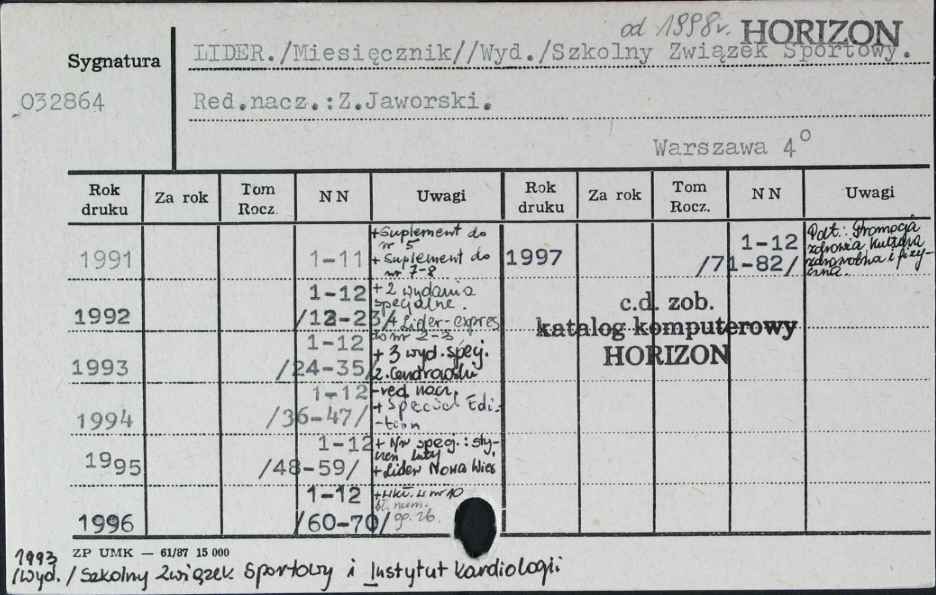 od 1998r. HORIZON
Sygnatura
LIDER./Miesięcznik//Wyd./Szkolny Związek Sportowy.
032864
Red.nacz.:Z.Jaworski.
Warszawa 4°
Rok druku Za rok Tom Rocz. NN Uwagi Rok druku Za rok Tom Rocz. NN Uwagi
1991 1-11 +Suplement do nr 5
+Suplement do nr 7-8
1997 1-12 /71-82/ Podt.: Promocja zdrowia kultura zdrowotna i fizyczna.
1992 1-12 /12-23/ +2 wydania specjalne.
+Lider-expres do nr 2-3
c.d. zob.
katalog komputerowy
HORIZON
1993 1-12 /24-35/ +3 wyd. specj.
Z. Cendrowski
-red. nacz.
1994 1-12 /36-47/ +Special Edi-
-tion
1995 1-12 /48-59/ +Nr specj.: sty-
czeń, luty
+Lider Nowa Wieś
1996 1-12 /60-70/ nr 10
bł. num.
ZP UMK — 61/87 15 000
1993
/Wyd./Szkolny Związek Sportowy i Instytut Kardiologii